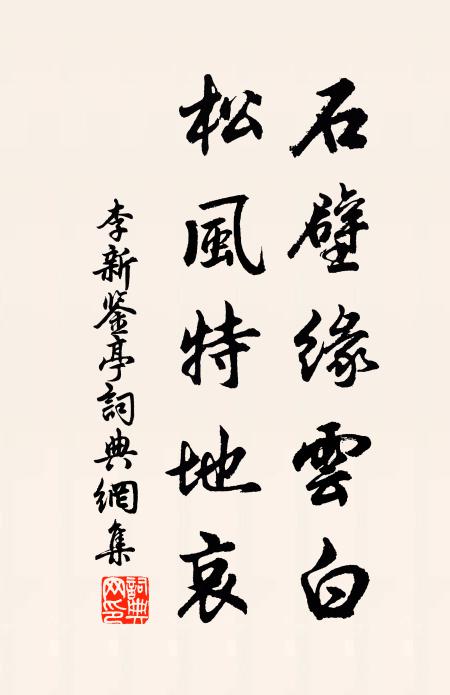 石壁緣雲白
松風特地哀
李新鉴亭詞典網集
詞典網印